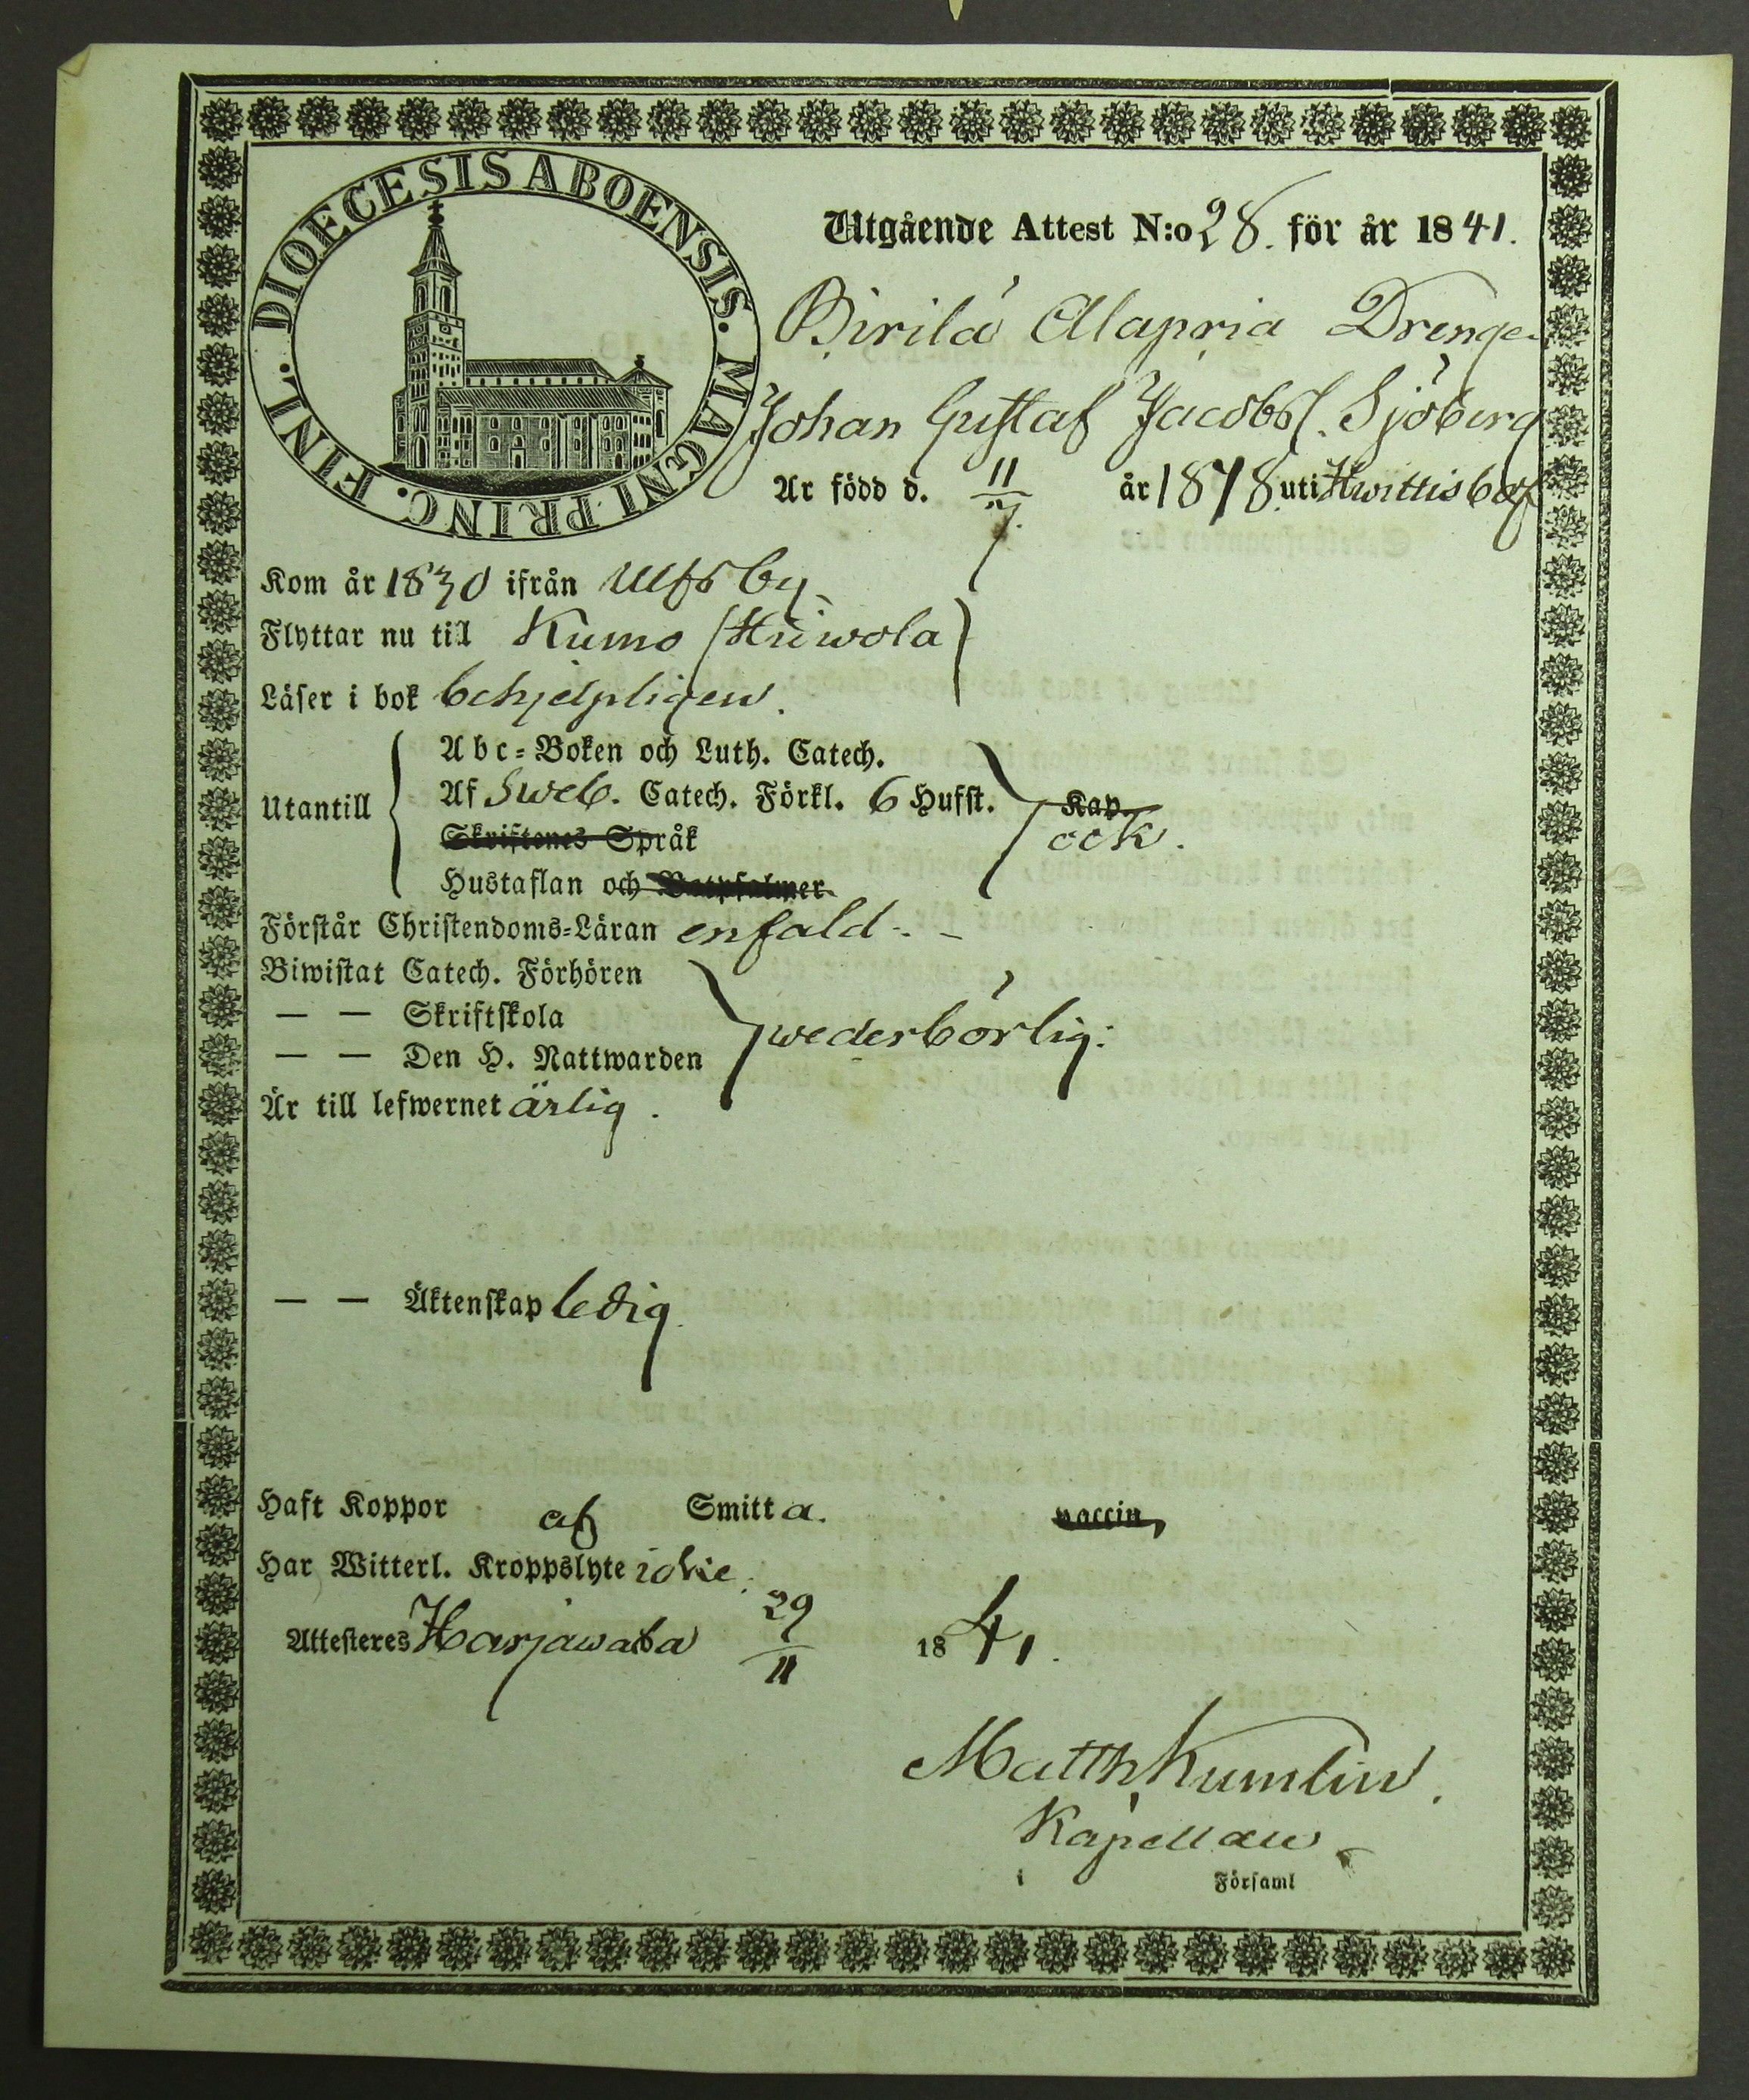 DIOECESIS ABOENSIS. MAGNI PRINC. FINL.
Utgående Attest N:o 28. för år 1841.
Birilä Alapria Drengen
Johan Gustaf Jacobss. Sjöberg
Är född d. 11/7. år 1818. uti Hwittisbof
Kom år 1830 ifrån Ulfsby
Flyttar nu till Kumo (Hiiwola)
Läser i bok behjelpligen.
Abc-Boken och Luth. Catech.
Utantill Af Sweb. Catech. Förkl. 6 Hufst. Kap.
Skriftenes Språk ock.
Hustaflan och Botpsalmer
Förstår Christendoms-Läran enfald.
Biwistat Catech. Förhören
— — Skriftskola wederbörlig:
— — Den H. Nattwarden
Är till lefwernet ärlig.
— — Äktenskap ledig.
Haft Koppor af Smitta. vaccin,
Har Witterl. Kroppslyte icke.
Attesteres Harjawalla 29/11 1841.
Matth Kumlin.
Kapellan
i Församl